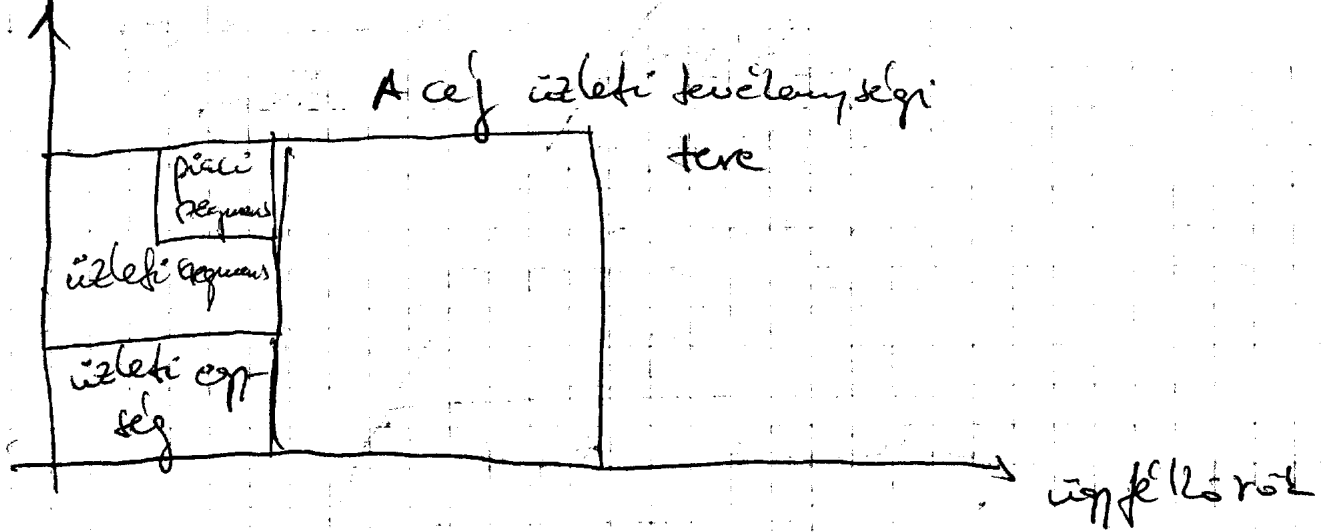 A cég üzleti tevékenységi
tere
piaci
szegmens
üzleti szegmens
üzleti egy-
ség
ügyfélkörök